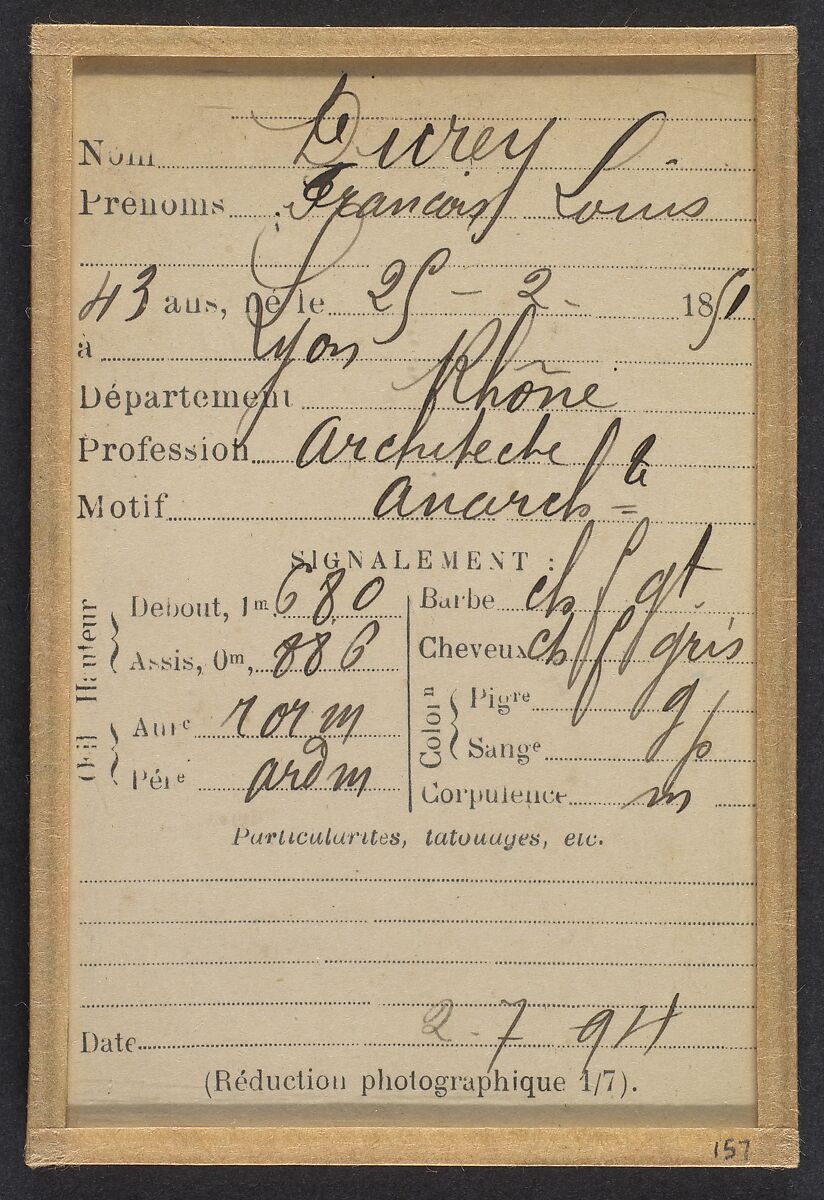 Nom Durey
Prénoms François Louis
43 ans, né le 25 - 2 - 1851
à Lyon
Département Rhône
Profession Architecte
Motif anarch te
SIGNALEMENT :
Hauteur
Debout, 1m, 68,0
Assis, 0m, 88 6
Œil
Aure r or m
Pére ard m
Barbe ch f gt
Cheveux ch f gris
Colorn
Pigre g
Sange p
Corpulence m
Particularités, tatouages, etc.
Date 2 - 7 94
(Réduction photographique 1/7).
157